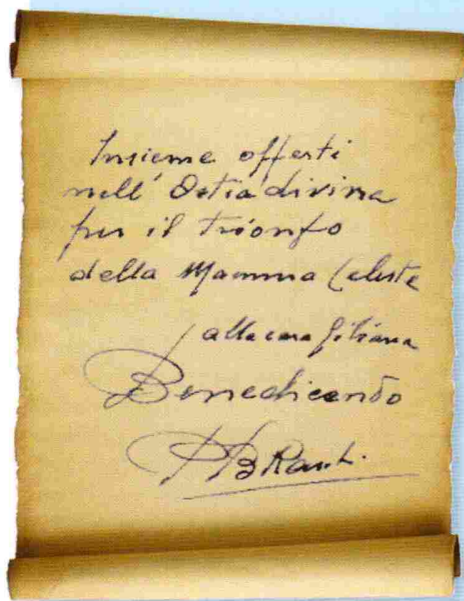 Insieme offerti
nell' Ostia divina
per il trionfo
della Mamma Celeste
alla cara
Benedicendo